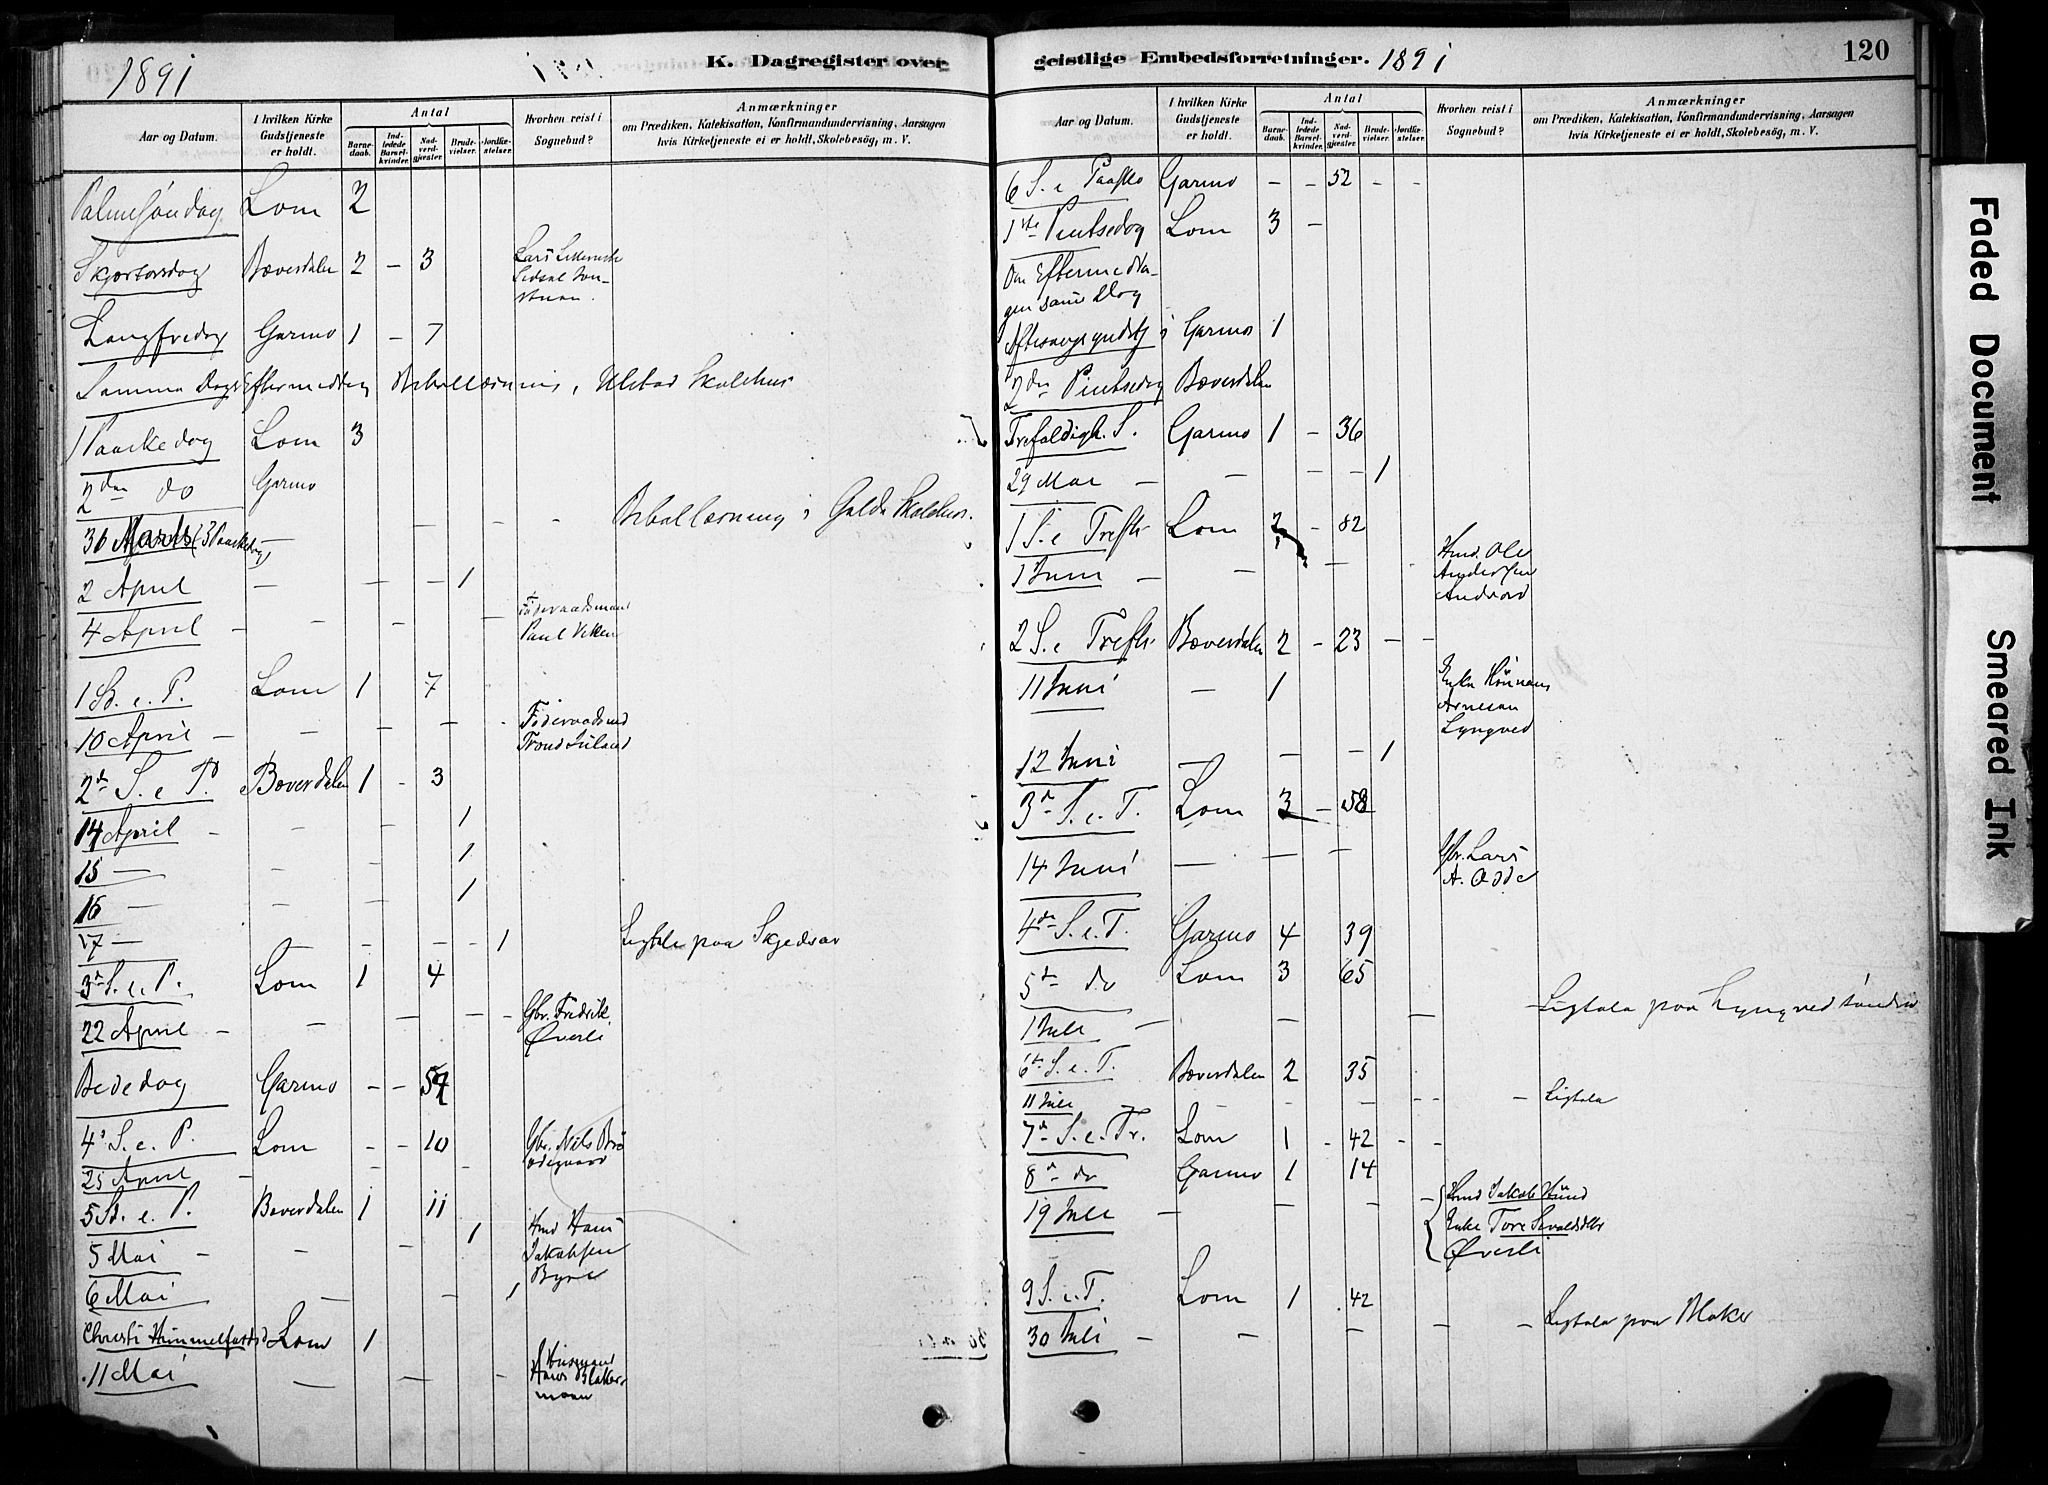 1891
K. Dagregister over
Aar og Datum.
I hvilken Kirke Gudstjeneste er holdt.
Antal
Barne-daab.
Ind-ledede Barsel-kvinder.
Nad-verd-gjester.
Brude-vielser.
Jordfæ-stelser.
Hvorhen reist i Sognebud?
Anmærkninger
om Prædiken, Katekisation, Konfirmandundervisning, Aarsagen
hvis Kirketjeneste ei er holdt, Skolebesög, m. V.
Palmesöndag Lom 2
Skjærtorsdag Bæverdalen 2 – 3
Langfredag Garmo 1 – 7
Samme Dags Eftermiddag Bibellæsning i Ulstad Skolehus
1 Paaskedag Lom 3
2den do Garmo
30 Marts (3 Paaskedag) – – – – Bibellæsning i Galde Skolehus.
2 April – – – 1
4 April – – – – Föderaadsmand
Paul Vikken
1 S. e. P. Lom 1 7
10 April – – – – – Föderaadsmd
Trond
2d S. e. P. Bæverdalen 1 – 3
14 April – – – 1
15 – – – 1
16 – – – 1
17 – – – – 1 Ligtale paa
3d S. e. P. Lom 1 4
22 April – – – – – Gbr. Fredrik
Øverli
Bededag Garmo – –
4d S. e. P. Lom – – 10 Gbr. Nils
25 April – – – –
5 S. e. P. Bæverdalen 1 11
5 Mai – – – 1 Hmd Hans
Jakobsen
6 Mai – – 1
Christi Himmelfartsd Lom 1
11 Mai – – – Husmand
Hans
geistlige Embedsforretninger. 1891
120
Aar og Datum.
I hvilken Kirke Gudstjeneste er holdt.
Antal
Barne-daab.
Ind-ledede Barsel-kvinder.
Nad-verd-gjester.
Brude-vielser.
Jordfæ-stelser.
Hvorhen reist i Sognebud?
Anmærkninger
om Prædiken, Katekisation, Konfirmandundervisning, Aarsagen
hvis Kirketjeneste ei er holdt, Skolebesög, m. V.
6 S. e Paaske Garmo – – 52 – –
1ste Pintsedag Lom 3 –
Om Eftermidda-
gen samme Dag
Aftensangsgudstj i Garmo 1
2den Pintsedag Bæverdalen
Trefoldigh. S. Garmo 1 – 36
29 Mai – – – – 1
1 S. e Trefh. Lom – 82
1 Juni – – – – Hmd. Ole
Andersen
2 S. e Trefh. Bæverdalen 2 – 23 – –
11 Juni – 1 Enke
Lyngved
12 Juni – – – 1
3d S. e. T. Lom 3 – 58
14 Juni – – – Gbr. Lars
A. Odde
4de S. e. T. Garmo 4 39
5te do Lom 3 65
1 Juli – – – – – Ligtale paa Lyngved söndre
6te S. e. T. Bæverdalen 2 35
11 Juli – – – – – – Ligtale
7d S. e. Tr. Lom 1 – 42 – –
8d do Garmo 1 14
19 Juli – – – – Hmd Jakob
Enke Tore
Øverli
9 S. e. T. Lom 1 42
30 Juli – – – – – Ligtale paa
Faded Document
Smeared Ink